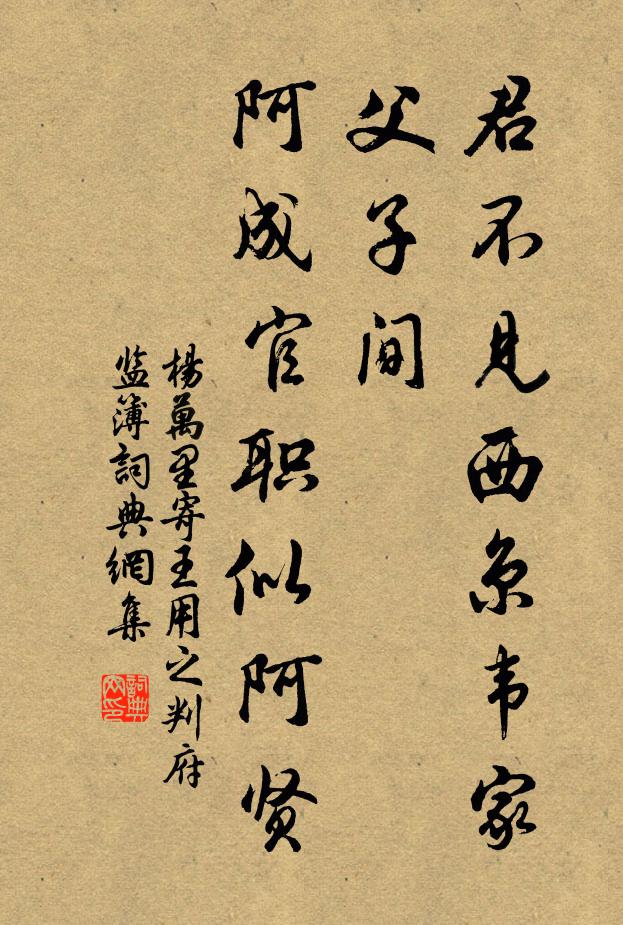 君不见西京韦家
父子间
阿成官职似阿贤
楊萬里寄王用之判府
监簿詞典網集
詞典